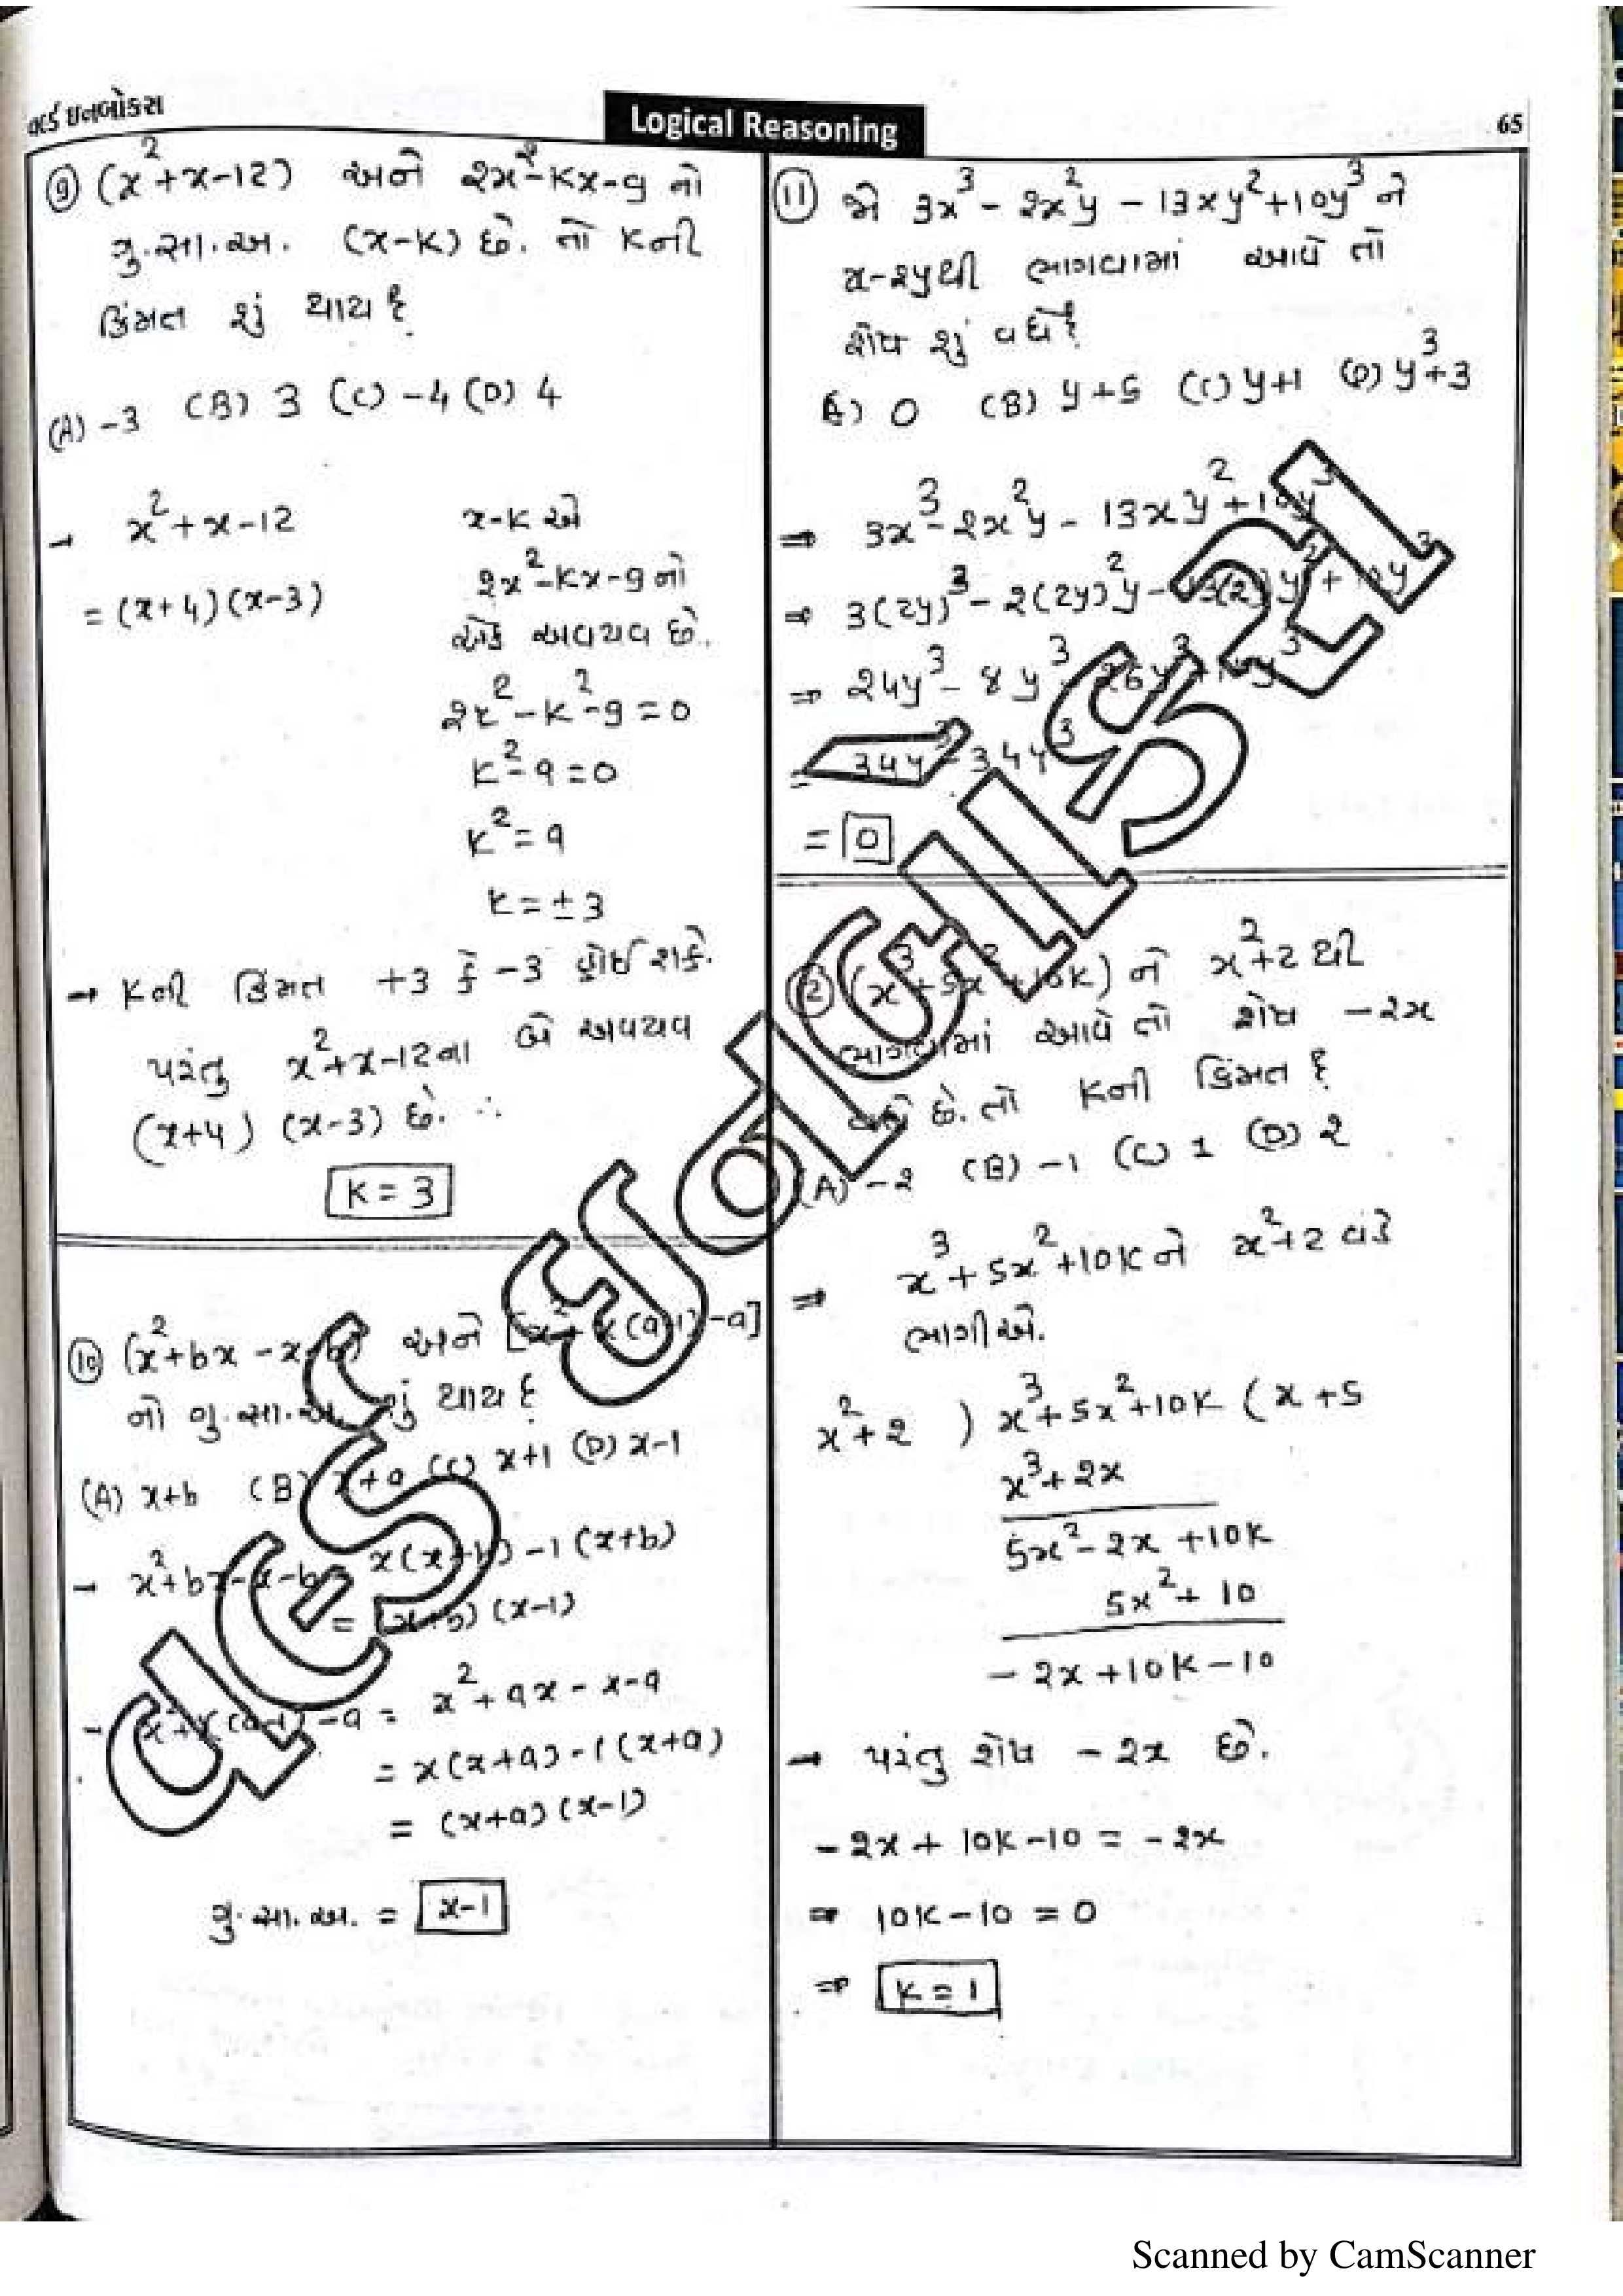 વર્લ્ડ ઇનબોક્સ
Logical Reasoning
65
⑨ (x²+x-12) અને 2x²-Kx-9 નો
ગુ.સા.અ. (x-K) છે. તો K ની
કિંમત શું થાય?
(A) -3 (B) 3 (C) -4 (D) 4
→ x²+x-12
= (x+4)(x-3)
x-K એ
2x²-Kx-9 નો
એક અવયવ છે.
2K²-K²-9=0
K²-9=0
K²=9
K=±3
→ K ની કિંમત +3 કે -3 હોઈ શકે.
પરંતુ x²+x-12 ના બે અવયવ
(x+4) (x-3) છે. ∴
K=3
⑩ (x²+bx-x-b) અને [x²+x(a-1)-a]
નો ગુ.સા.અ. શું થાય?
(A) x+b (B) x+a (C) x+1 (D) x-1
→ x²+bx-x-b = x(x+b)-1(x+b)
= (x+b)(x-1)
→ x²+x(a-1)-a = x²+ax-x-a
= x(x+a)-1(x+a)
= (x+a)(x-1)
ગુ.સા.અ. = x-1
⑪ જો 3x³-2x²y-13xy²+10y³ ને
x-2y થી ભાગવામાં આવે તો
શેષ શું વધે?
(A) 0 (B) y+5 (C) y+1 (D) y³+3
⇒ 3x³-2x²y-13xy²+10y³
⇒ 3(2y)³-2(2y)²y-13(2y)y²+10y³
⇒ 24y³-8y³-26y³+10y³
= 34y³-34y³
= 0
⑫ (x³+5x²+10K) ને x²+2 થી
ભાગવામાં આવે તો શેષ -2x
વધે છે. તો K ની કિંમત?
(A) -2 (B) -1 (C) 1 (D) 2
⇒ x³+5x²+10K ને x²+2 વડે
ભાગીએ.
x²+2 ) x³+5x²+10K ( x+5
x³+2x
5x²-2x+10K
5x²+10
-2x+10K-10
→ પરંતુ શેષ -2x છે.
-2x+10K-10 = -2x
⇒ 10K-10=0
⇒ K=1
Scanned by CamScanner